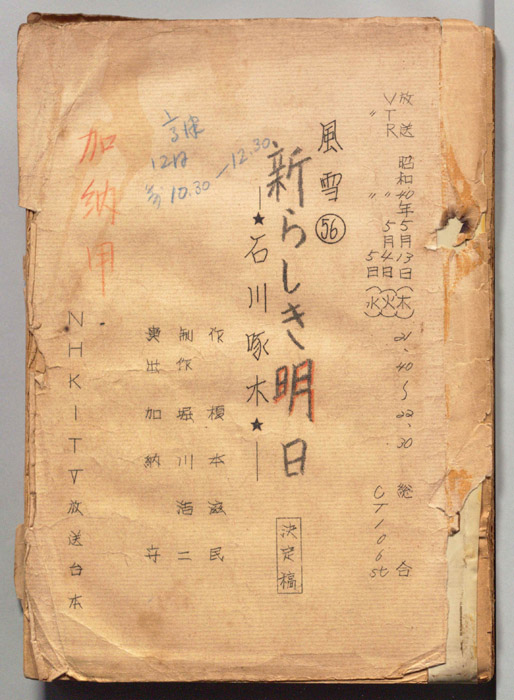 放送 昭和40年5月13日(木) 21.40~22.30 総合
VTR 〃 5月4日(火) CT106st
〃 5日(水)
風雪 56
新らしき明日
―★石川啄木★―
決定稿
作 榎本滋民
制作 堀川浩二
演出 加納守
12日
10.30―12.30
加納用
NHKITV放送台本